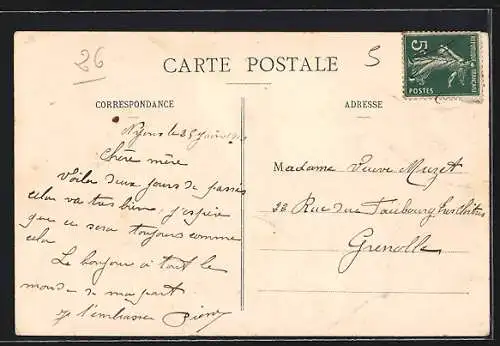 26
5
CARTE POSTALE
5c
POSTES
CORRESPONDANCE
ADRESSE
Nyons le 25
Chère mère
Voila deux jours de passés
cela va très bien, j'espère
que ce sera toujours comme
cela
Le bonjour à tout le
monde de ma part
Je t'embrasse
Madame Veuve Muzet
Rue du Faubourg
Grenoble